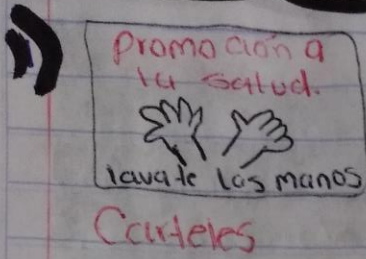 1)
Promoción a
tu salud.
lavate las manos
Carteles